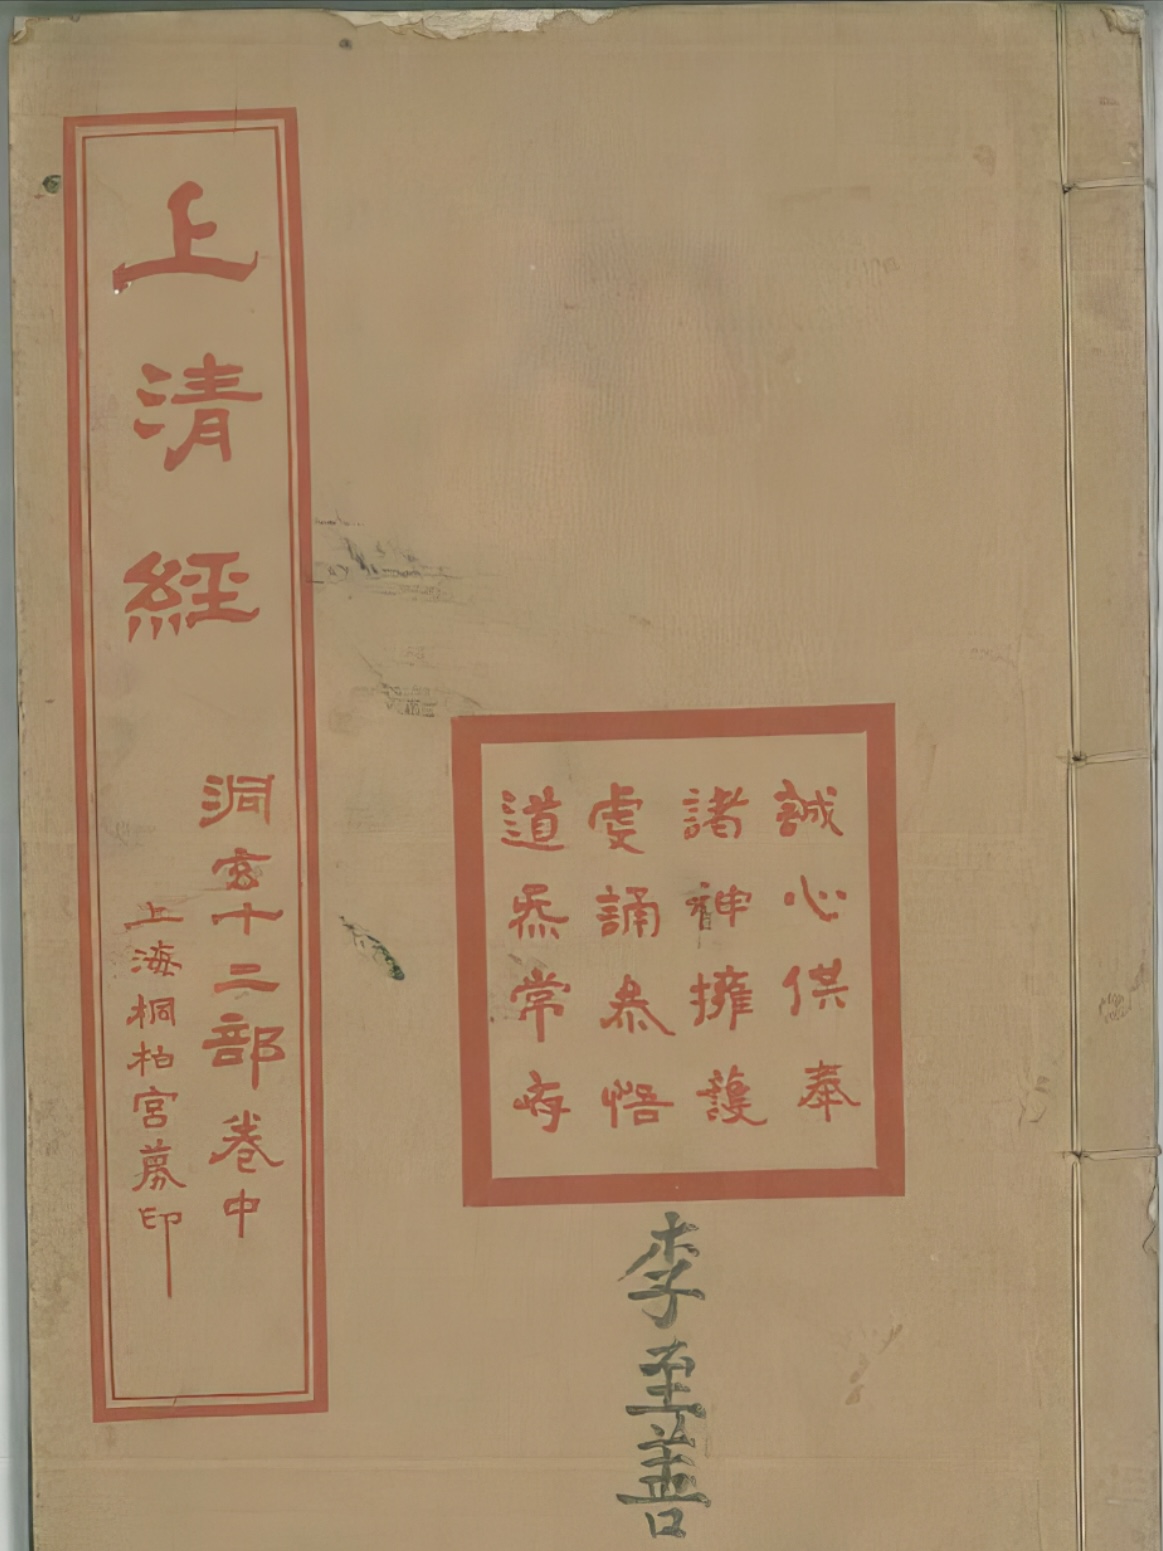 誠心供奉
諸神擁護
虔誦叅悟
道炁常存
李至善
上清經
洞玄十二部卷中
上海桐柏宮募印